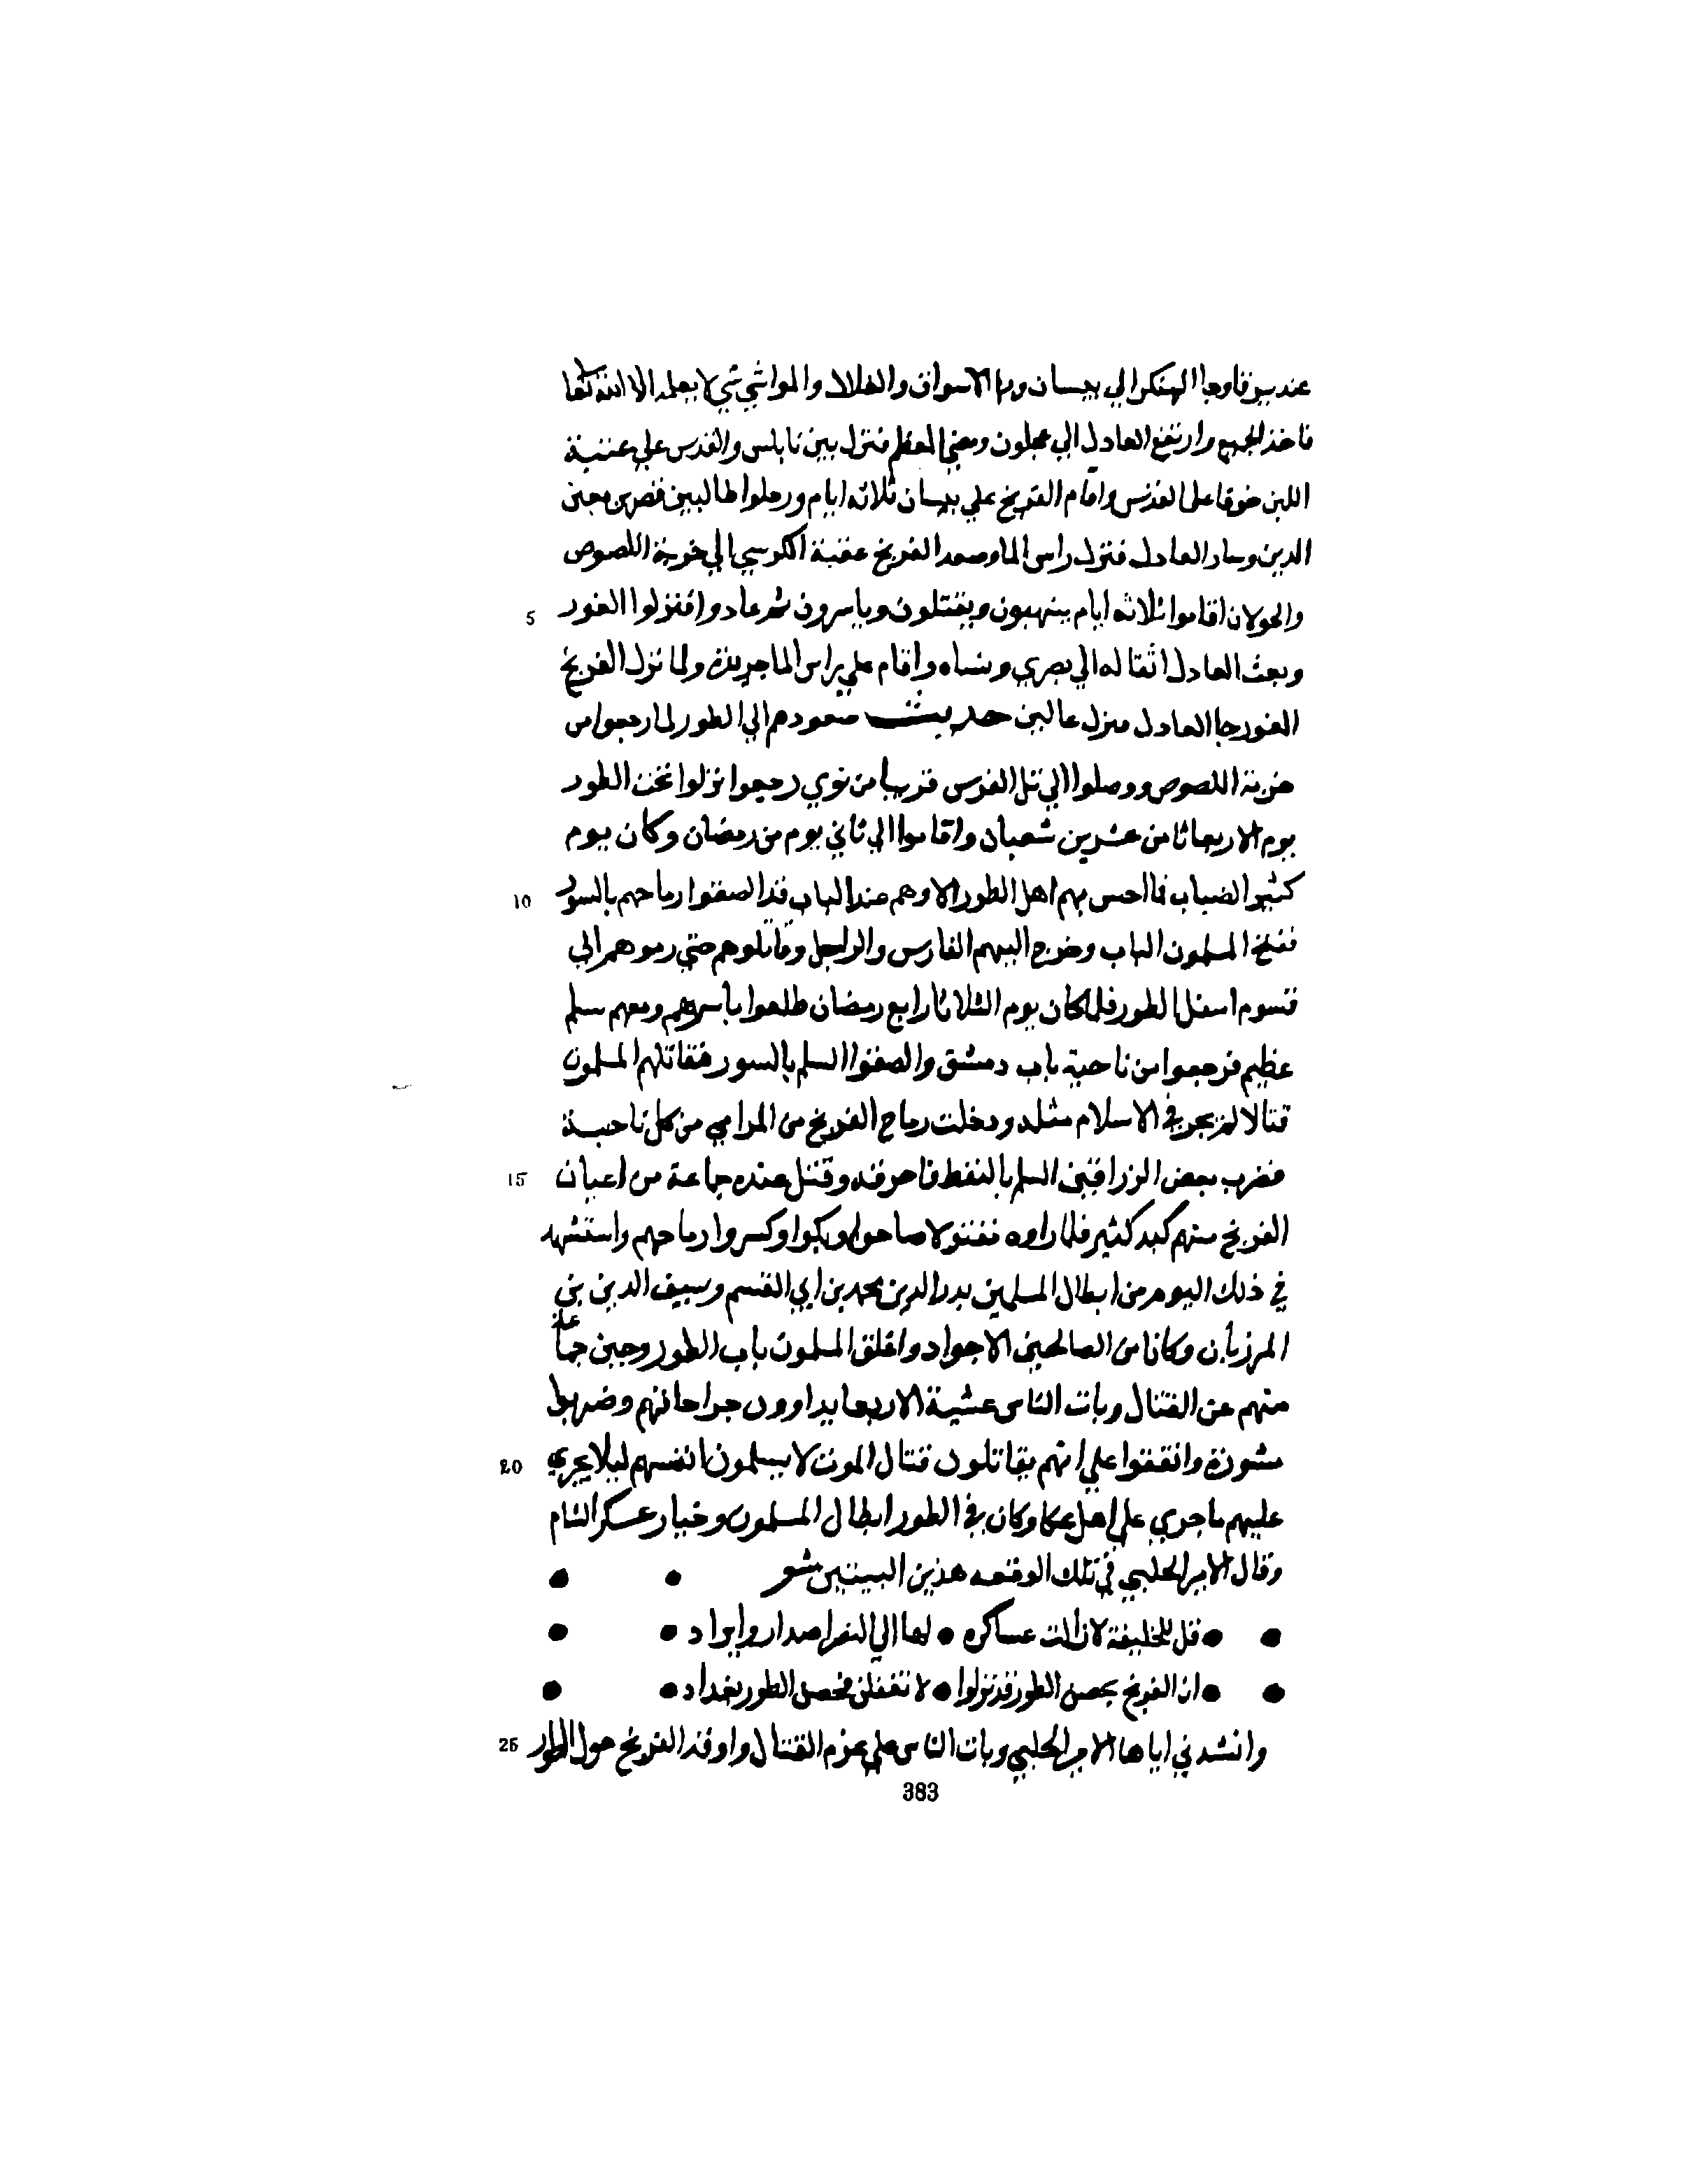 وجا الهنكر الي بيسان وبها الاسواق والغلال والمواشي شي لا يعلمه الا الله تعا
فاخذ الجميع وارتفع العادل الي عجلون ومضي المعظم فنزل بين نابلس والقدس علي عقبة
اللبن خوفا علي القدس واقام الفرنج علي بيسان ثلاثه ايام ورحلوا طالبين قصر بن معين
الدين وسار العادل فنزل راس الما وصعد الفرنج عقبة الكرسي الي خربة اللصوص
5 والجولان اقاموا ثلاثه ايام ينهبون ويقتلون وياسرون ثم عادوا فنزلوا الغور
وبعث العادل اثقاله الي بصري ونساه واقام علي راس الما جريدة ولما نزل الفرنج
الغور جا العادل منزل عالقين حديث صعودهم الي الطور لما رجعوا من
خربة اللصوص ووصلوا الي تل الفرس قريبا من نوي رجعوا نزلوا تحت الطور
يوم الاربعا ثامن عشرين شعبان واقاموا الي ثاني يوم من رمضان وكان يوم
10 كثير الضباب فما احس بهم اهل الطور الا وهم عند الباب قد الصقوا رماحهم بالسور
ففتح المسلمون الباب وخرج اليهم الفارس والراجل وقاتلوهم حتي رموهم الي
اسفل الطور فلما كان يوم الثلاثا رابع رمضان طلعوا باسرهم ومعهم سلم
عظيم فزحفوا من ناحية باب دمشق والصقوا السلم بالسور فقاتلهم المسلمون
قتالا لم يجر في الاسلام مثله ودخلت رماح الفرنج من المرامي من كل ناحية
15 فضرب بعض الزراقين السلم بالنفط فاحرقه وقتل عنده جماعة من اعيان
الفرنج منهم كند كثير فلما راوه مقتولا صاحوا وبكوا وكسروا رماحهم واستشهد
في ذلك اليوم من ابطال المسلمين بدر الدين محمد بن ابي القسم وسيف الدين بن
المرزبان وكانا من الصالحين الاجواد واغلق المسلمون باب الطور وجبن جماعة
منهم عن القتال وبات الناس عشية الاربعا يداوون جراحاتهم وضربوا
20 مشورة واتفقوا علي انهم يقاتلون قتال الموت لا يسلمون انفسهم ليلا يجري
عليهم ما جري علي اهل عكا وكان في الطور ابطال المسلمون وخيار عسكر الشام
وقال الامير الحلبي في تلك الوقعه هذين البيتين شعر
قل للخليفة لا زالت عساكره • لها الي النصر اصدار وايراد
ان الفرنج بحصن الطور قد نزلوا • لا تغفلن فحصن الطور بغداد
25 وانشدني اياها الامير الحلبي وبات الناس علي عزم القتال واوقد الفرنج حول الطور
383